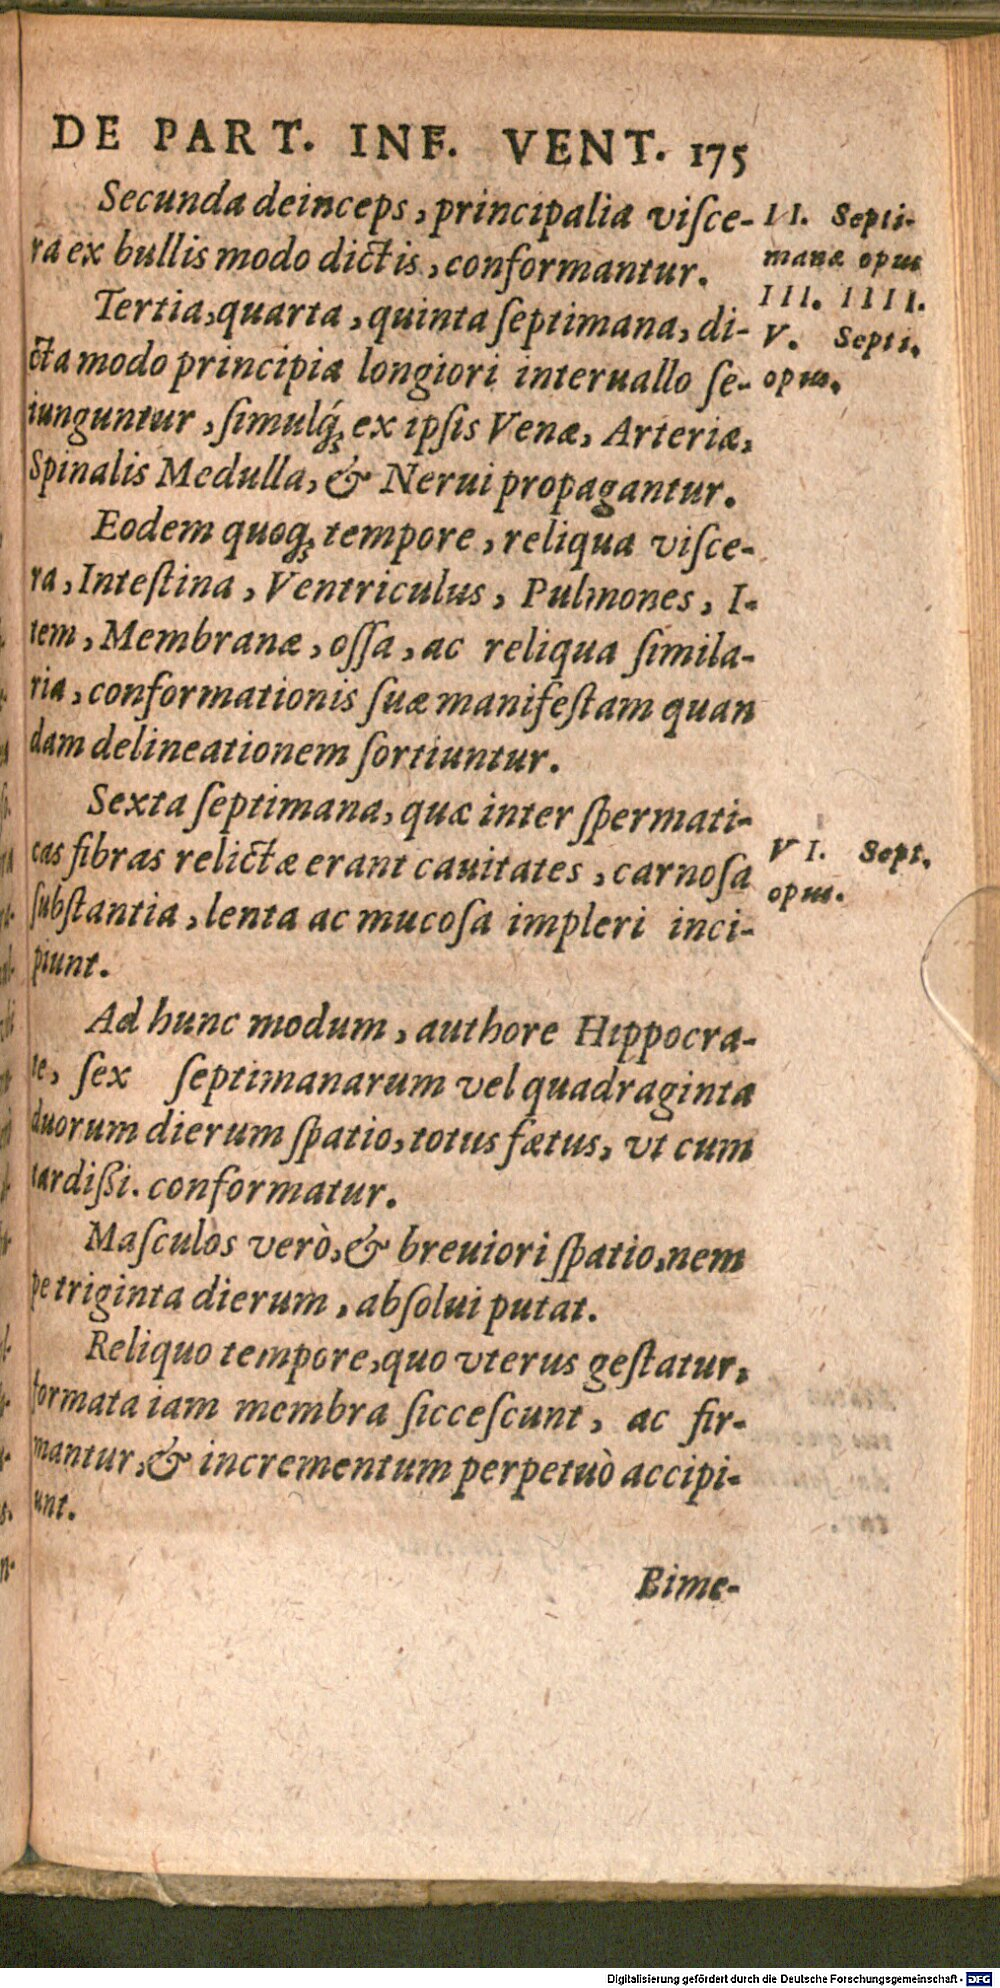 DE PART. INF. VENT. 175
Secunda deinceps, principalia viſce-
ra ex bullis modo dictis, conformantur.
II. Septi-
manæ opus
Tertia, quarta, quinta ſeptimana, di-
cta modo principia longiori interuallo ſe-
iunguntur, ſimulq́; ex ipſis Venæ, Arteriæ,
Spinalis Medulla, & Nerui propagantur.
III. IIII.
V. Septi.
opus.
Eodem quoq; tempore, reliqua viſce-
ra, Inteſtina, Ventriculus, Pulmones, I-
tem, Membranæ, oſſa, ac reliqua ſimila-
ria, conformationis ſuæ manifeſtam quan
dam delineationem ſortiuntur.
Sexta ſeptimana, quæ inter ſpermati-
cas fibras relictæ erant cauitates, carnoſa
ſubſtantia, lenta ac mucoſa impleri inci-
piunt.
VI. Sept.
opus.
Ad hunc modum, authore Hippocra-
te, ſex ſeptimanarum vel quadraginta
duorum dierum ſpatio, totus fætus, vt cum
tardißi. conformatur.
Maſculos verò, & breuiori ſpatio, nem
pe triginta dierum, abſolui putat.
Reliquo tempore, quo vterus geſtatur,
formata iam membra ſicceſcunt, ac fir-
mantur, & incrementum perpetuò accipi-
unt.
Bime-
Digitalisierung gefördert durch die Deutsche Forschungsgemeinschaft - DFG